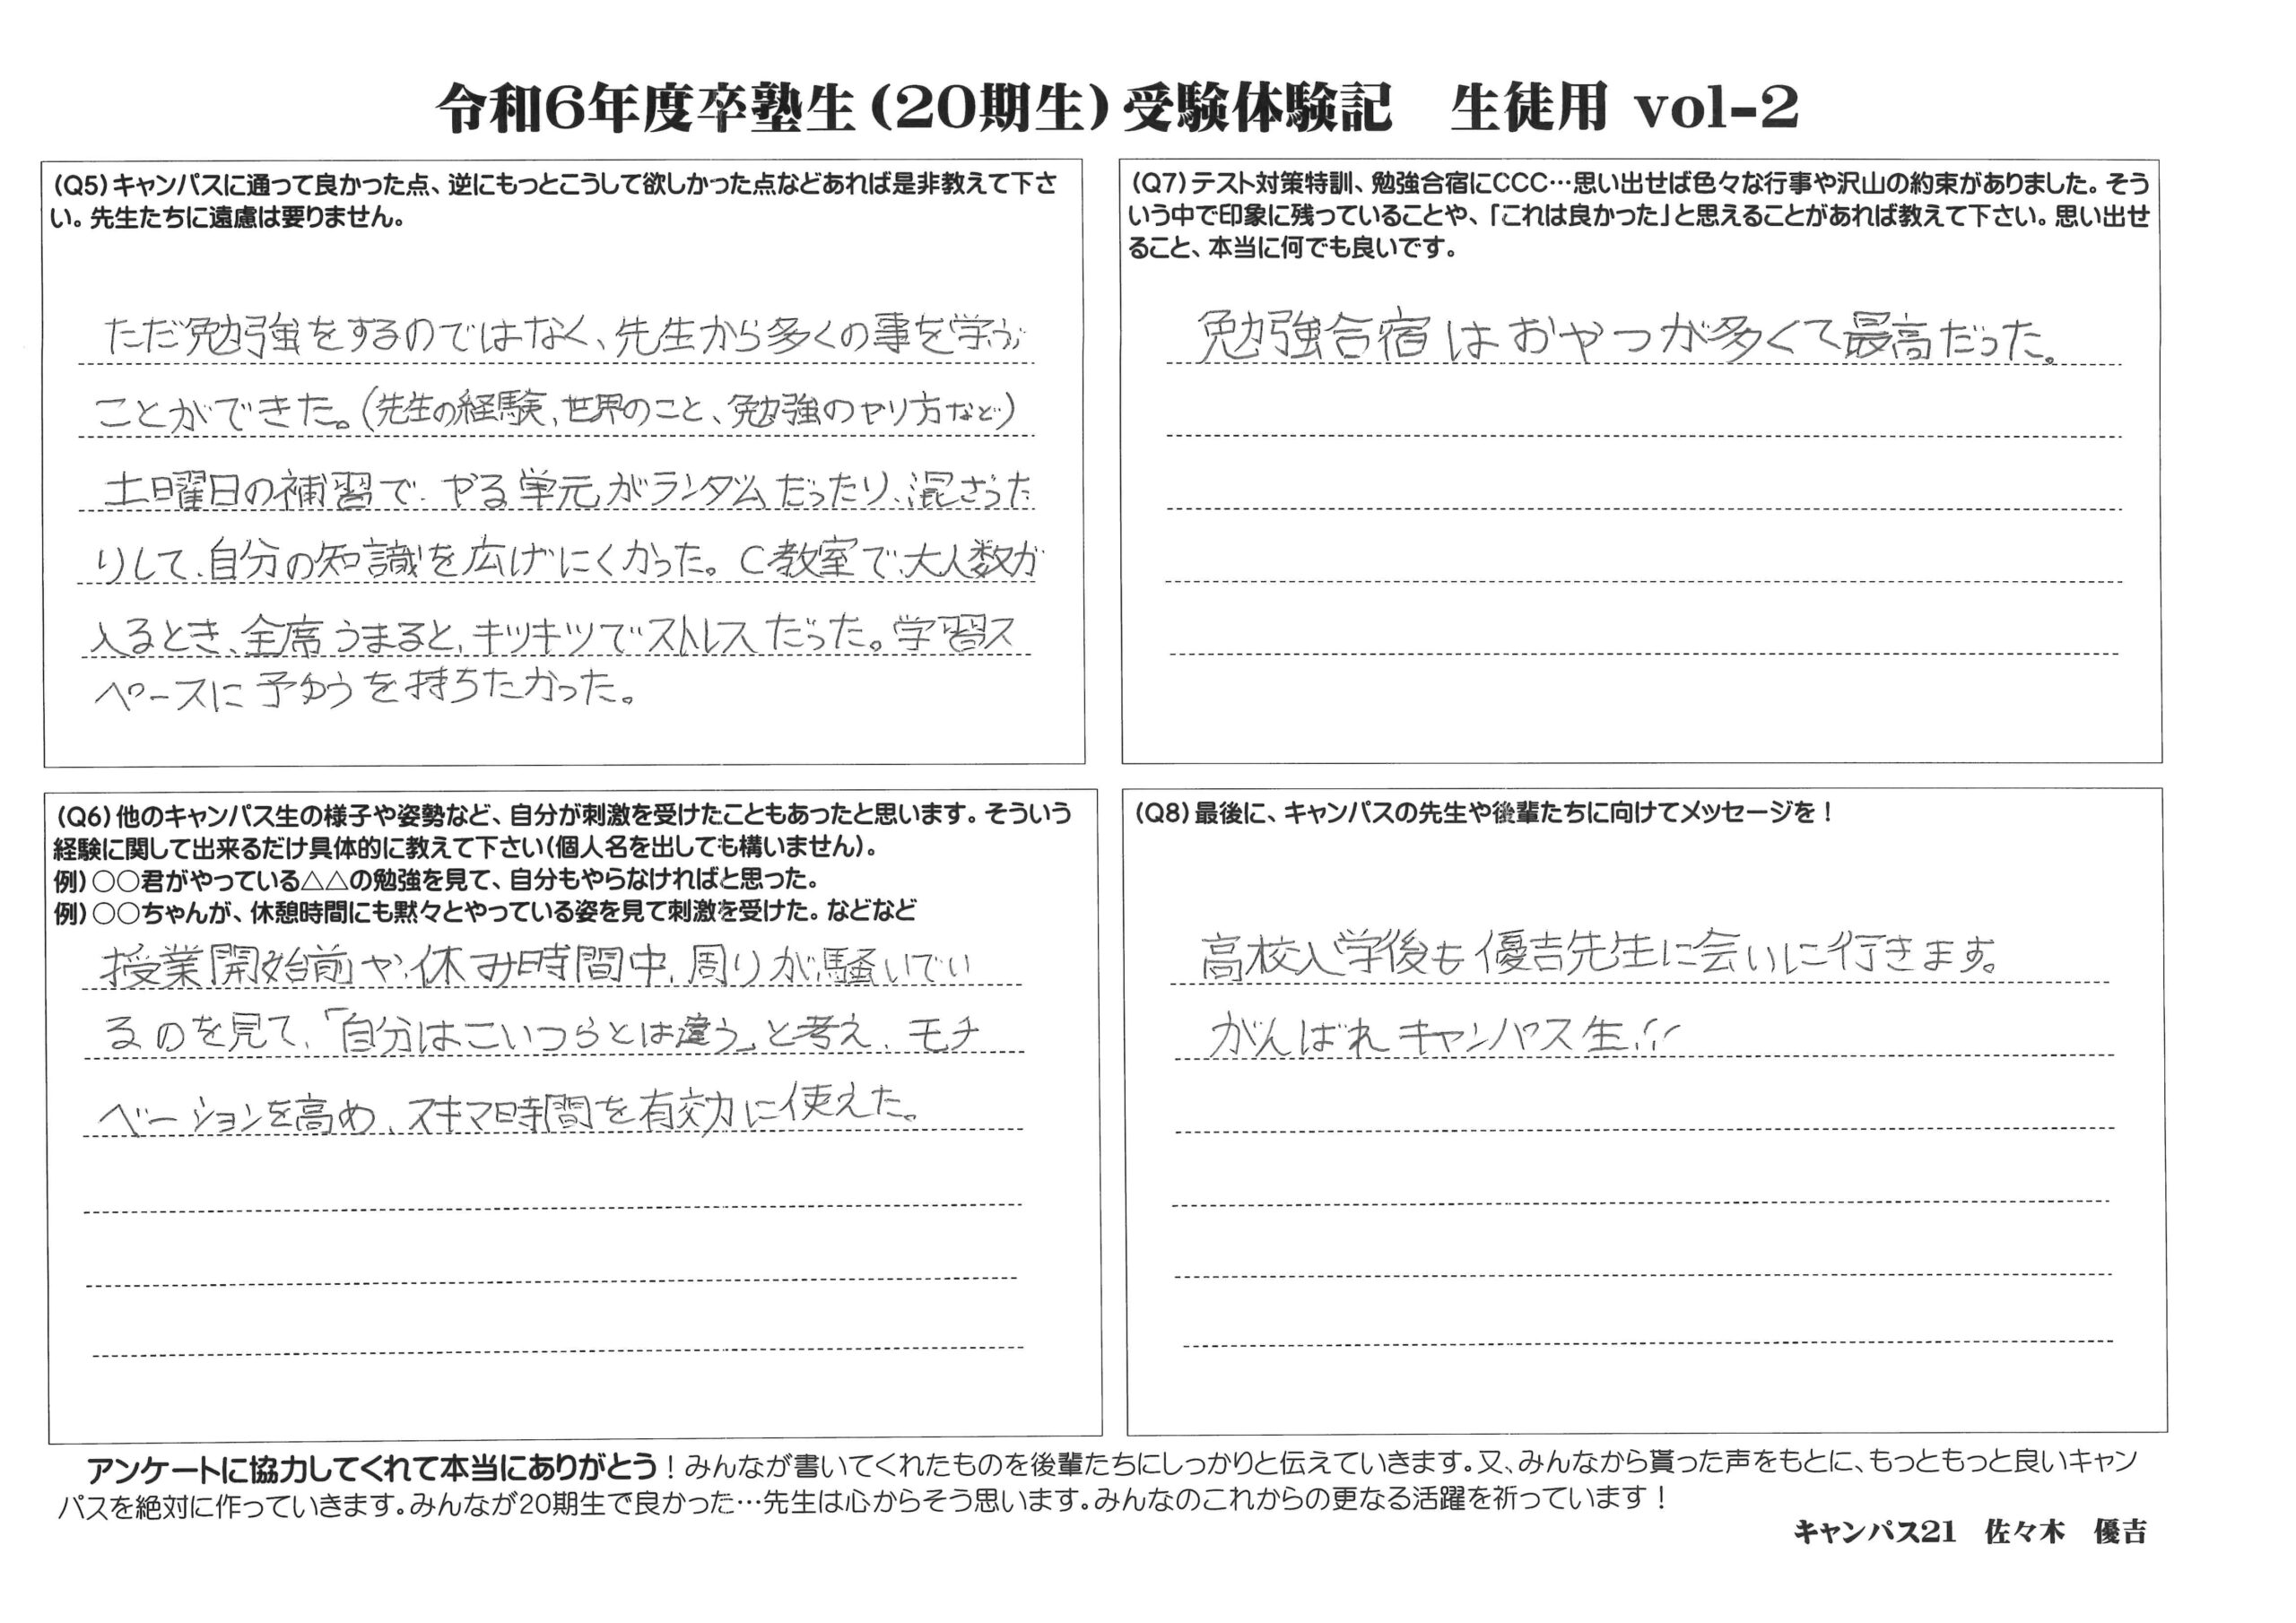 令和6年度卒塾生(20期生)受験体験記　生徒用 vol-2
(Q5)キャンパスに通って良かった点、逆にもっとこうして欲しかった点などあれば是非教えて下さ
い。先生たちに遠慮は要りません。
ただ勉強をするのではなく、先生から多くの事を学ぶ
ことができた。(先生の経験、世界のこと、勉強のやり方など)
土曜日の補習で、やる単元がランダムだったり、混ざった
りして、自分の知識を広げにくかった。C教室で、大人数が
入るとき、全席うまると、キツキツでストレスだった。学習ス
ペースに予ゆうを持ちたかった。
(Q6)他のキャンパス生の様子や姿勢など、自分が刺激を受けたこともあったと思います。そういう
経験に関して出来るだけ具体的に教えて下さい(個人名を出しても構いません)。
例)○○君がやっている△△の勉強を見て、自分もやらなければと思った。
例)○○ちゃんが、休憩時間にも黙々とやっている姿を見て刺激を受けた。などなど
授業開始前や、休み時間中、周りが騒いでい
るのを見て、「自分はこいつらとは違う」と考え、モチ
ベーションを高め、スキマ時間を有効に使えた。
(Q7)テスト対策特訓、勉強合宿にCCC…思い出せば色々な行事や沢山の約束がありました。そう
いう中で印象に残っていることや、「これは良かった」と思えることがあれば教えて下さい。思い出せ
ること、本当に何でも良いです。
勉強合宿はおやつが多くて最高だった。
(Q8)最後に、キャンパスの先生や後輩たちに向けてメッセージを！
高校入学後も優吉先生に会いに行きます。
がんばれキャンパス生!!
アンケートに協力してくれて本当にありがとう！みんなが書いてくれたものを後輩たちにしっかりと伝えていきます。又、みんなから貰った声をもとに、もっともっと良いキャン
パスを絶対に作っていきます。みんなが20期生で良かった…先生は心からそう思います。みんなのこれからの更なる活躍を祈っています！
キャンパス21　佐々木　優吉